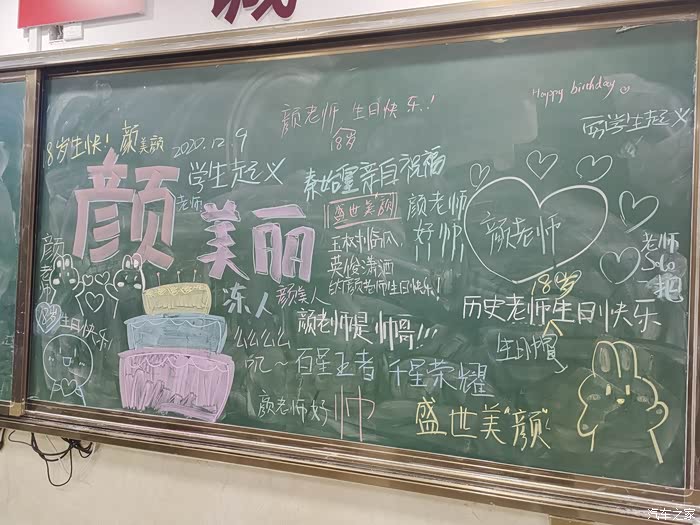 Happy birthday
颜老师,生日快乐.!
18岁
8岁生快! 颜美颜
2020.12.9
学生起义
秦始皇亲自祝福
颜
老师
美丽
盛世美颜
颜老师
好帅
玉树临风
英俊潇洒
的颜老师生日快乐!
颜老师
老师
Solo
一把
18岁
历史老师生日快乐
生日帽
颜老师
生日快乐!
冻人
颜美人
颜老师是帅哥!!!
么么么么
叽~
百星王者 千星荣耀
颜老师好帅
盛世美“颜”
汽车之家